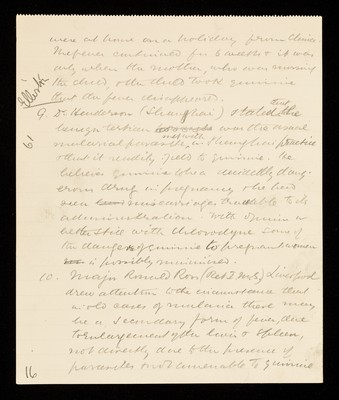 were at home on a holiday from China
The fever continued for 6 weeks & it was
only when the mother, who was nursing
the child, & the child took quinine
that the fever disappeared.
Ellerton
19
9. Dr. Henderson (Shanghai) stated that the
benign tertian was the usual
malarial parasite met with in Shanghai practice
& that it readily yield to quinine. He
believes quinine to be a decidedly dang-
erous drug in pregnancy & he had
seen miscarriage due to its
administration. With opium or
better still with Chlorodyne some of
the dangers of quinine to pregnant women
is possibly minimised.
10. Major Ronald Ross Liverpool
drew attention to the circumstance that
in old cases of malaria there may
be a secondary form of fever, due
to enlargement of the liver & spleen,
not directly due to the presence of
parasites & not amenable to quinine
16